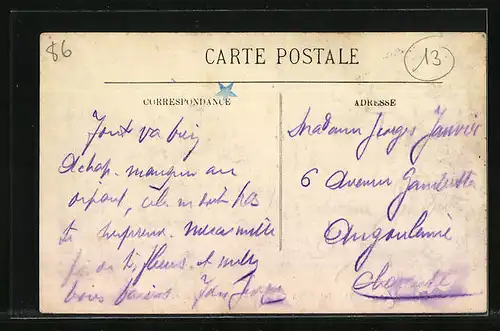 86
CARTE POSTALE
13
CORRESPONDANCE
ADRESSE
Tout va bien
manque au
départ, cela ne doit pas
te surprendre. merci mille
fois de tes fleurs et mille
bons baisers.
Madame Georges Janvier
6 Avenue Gambetta
Angoulême
Charente